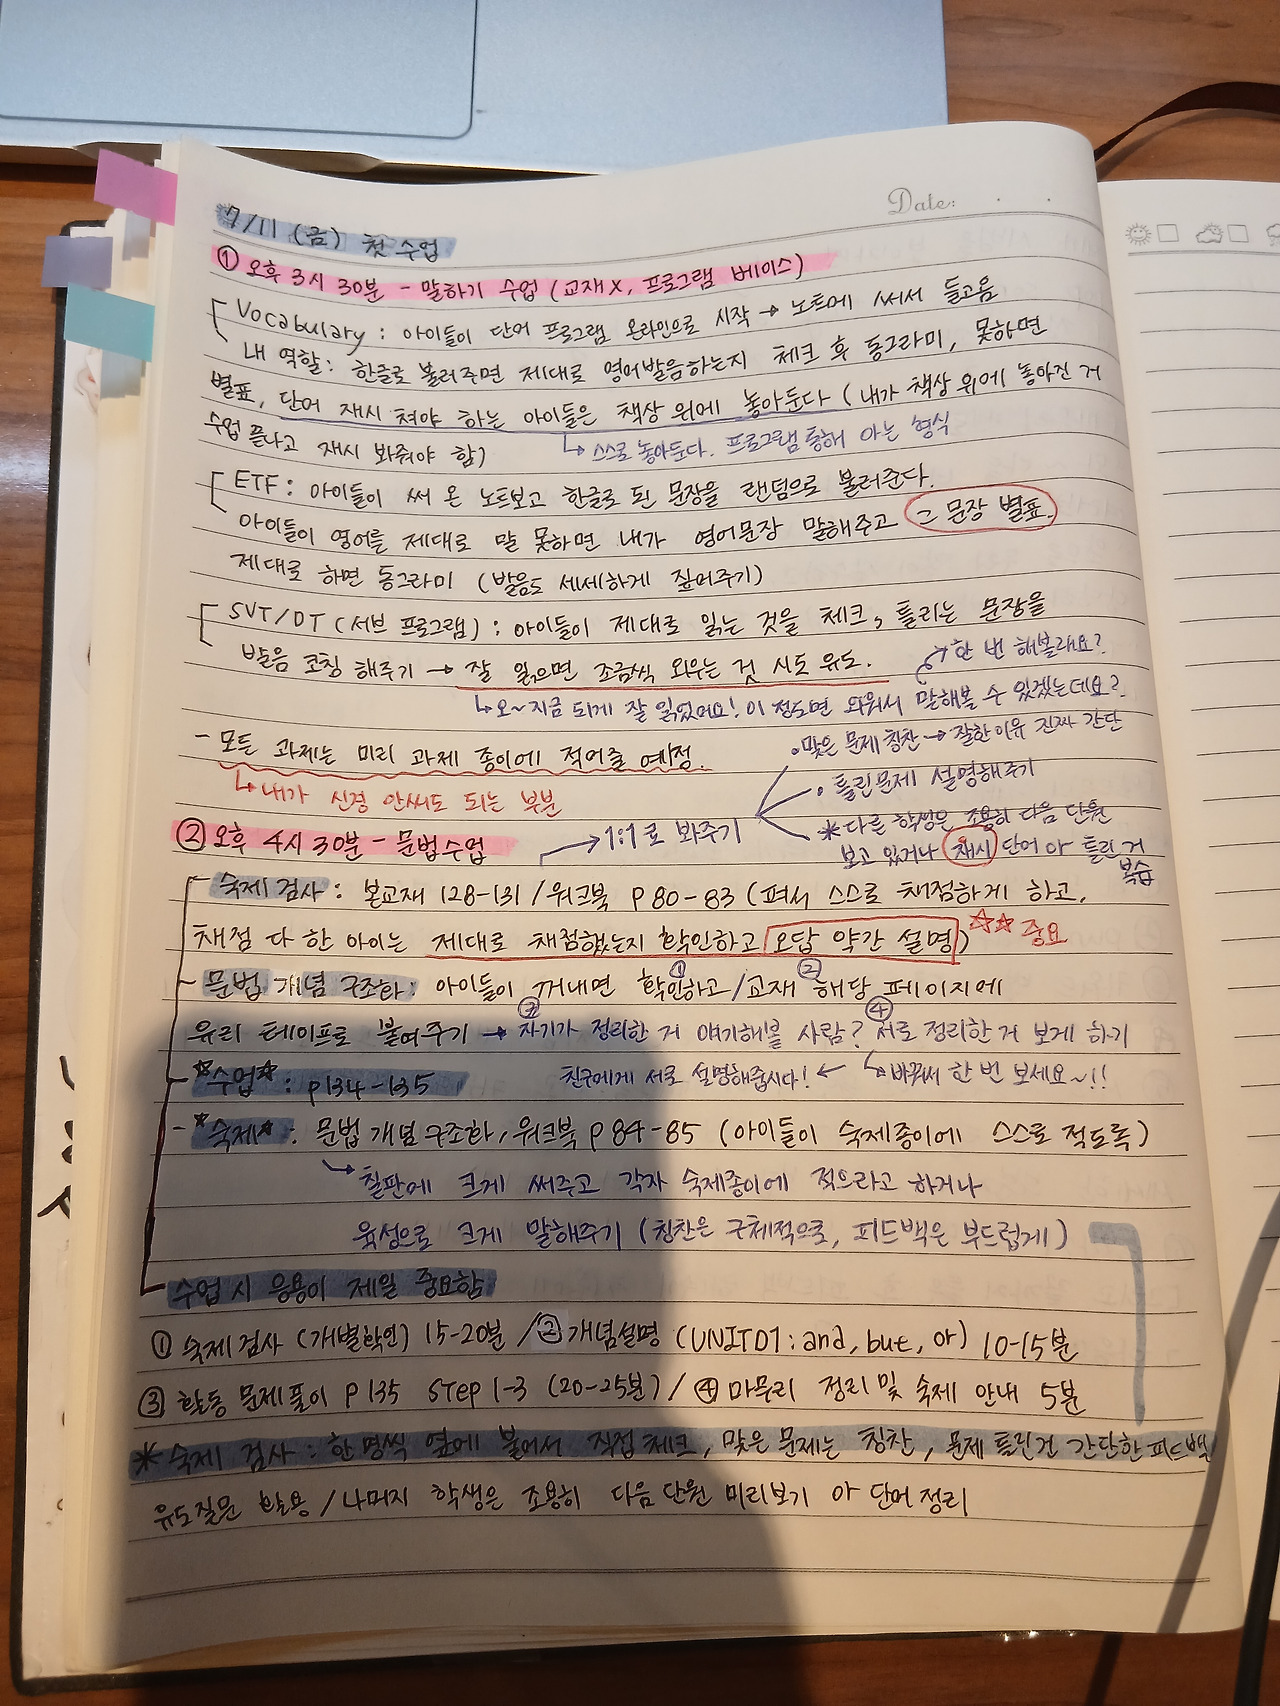 Date: . .
7/11 (금) 첫 수업
① 오후 3시 30분 - 말하기 수업 (교재X, 프로그램 베이스)
Vocabulary : 아이들이 단어 프로그램 온라인으로 시작 → 노트에 써서 들고옴
내 역할: 한글로 불러주면 제대로 영어발음하는지 체크 후 동그라미, 못하면
별표, 단어 재시 쳐야 하는 아이들은 책상 위에 놓아둔다 (내가 책상 위에 놓아진 거
수업 끝나고 재시 봐줘야 함)
↳ 스스로 놓아둔다. 프로그램 통해 아는 형식
ETF : 아이들이 써 온 노트보고 한글로 된 문장을 랜덤으로 불러준다.
아이들이 영어를 제대로 말 못하면 내가 영어문장 말해주고 그 문장 별표.
제대로 하면 동그라미 (발음도 세세하게 짚어주기)
SVT/DT (서브 프로그램) : 아이들이 제대로 읽는 것을 체크, 틀리는 문장을
발음 코칭 해주기 → 잘 읽으면 조금씩 외우는 것 시도 유도.
→ 한 번 해볼래요?
↳ 오~ 지금 되게 잘 읽었어요! 이 정도면 외워서 말해볼 수 있겠는데요?
- 모든 과제는 미리 과제 종이에 적어줄 예정.
↳ 내가 신경 안써도 되는 부분
② 오후 4시 30분 - 문법수업
→ 1:1로 봐주기
• 맞은 문제 칭찬 → 잘한 이유 진짜 간단
• 틀린문제 설명해주기
* 다른 학생은 조용히 다음 단원
보고 있거나 재시 단어 or 틀린 거
복습
- 숙제 검사 : 본교재 128-131 / 워크북 p 80-83 (펴서 스스로 채점하게 하고,
채점 다 한 아이는 제대로 채점했는지 확인하고 오답 약간 설명) ☆☆ 중요
- 문법 개념 구조화 : 아이들이 꺼내면 ① 확인하고 / ② 교재 해당 페이지에
유리 테이프로 붙여주기 → ③ 자기가 정리한 거 얘기해볼 사람? ④ 서로 정리한 거 보게 하기
친구에게 서로 설명해줍시다! ← ↳ 바꿔서 한 번 보세요~!!
- *수업* : p134-135
- *숙제* : 문법 개념 구조화, 워크북 p 84-85 (아이들이 숙제종이에 스스로 적도록)
↳ 칠판에 크게 써주고 각자 숙제종이에 적으라고 하거나
육성으로 크게 말해주기 (칭찬은 구체적으로, 피드백은 부드럽게)
- 수업 시 응용이 제일 중요함
① 숙제 검사 (개별확인) 15-20분 / ② 개념설명 (UNIT07 : and, but, or) 10-15분
③ 활동 문제풀이 p 135 Step 1-3 (20-25분) / ④ 마무리 정리 및 숙제 안내 5분
* 숙제 검사 : 한 명씩 옆에 붙어서 직접 체크, 맞은 문제는 칭찬, 문제 틀린건 간단한 피드백
유도질문 활용 / 나머지 학생은 조용히 다음 단원 미리보기 or 단어 정리